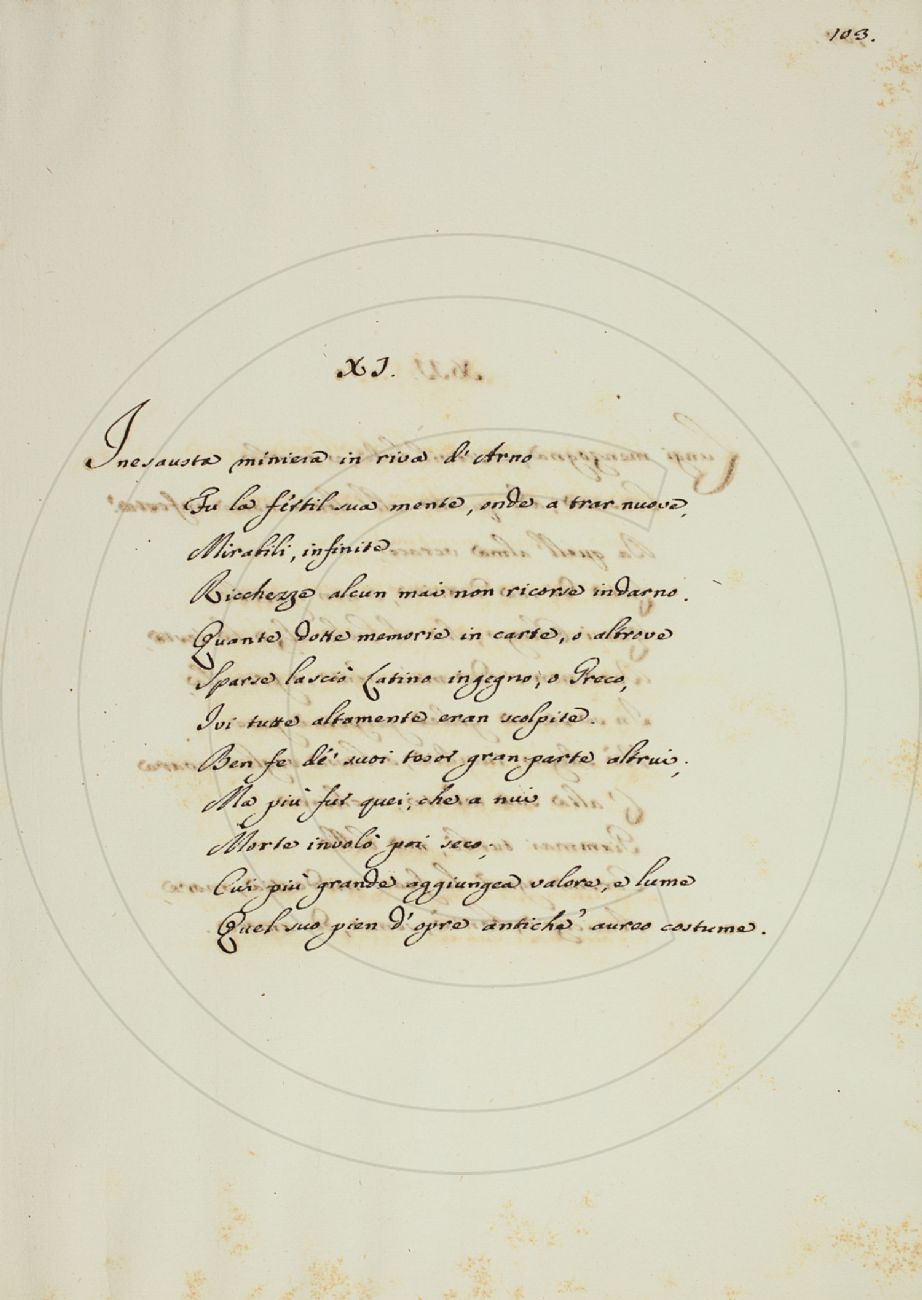 103.
XI.
Inesausta miniera in riva d'Arno
Fu la fertil sua mente, onde a trar nuove,
Mirabili, infinite
Ricchezze alcun mai non ricorse indarno.
Quante dotte memorie in carte, o altrove
Sparse lasciò Latino ingegno, o Greco,
Ivi tutte altamente eran scolpite.
Ben fe de' suoi tesor gran parte altrui;
Ma più fur quei, che a nui
Morte involò poi seco;
Cui più grande aggiungea valore, e lume
Quel suo pien d'opre antiche aureo costume.